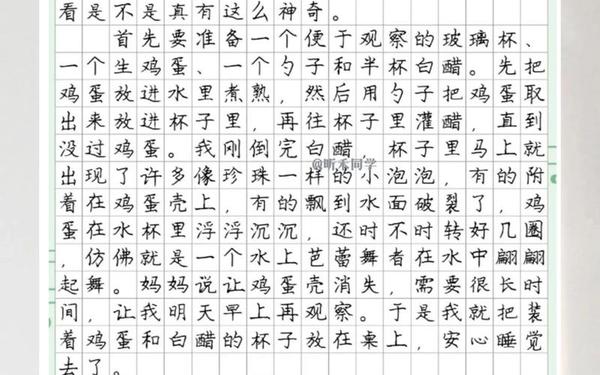 看是不是真有这么神奇。
首先要准备一个便于观察的玻璃杯、
一个生鸡蛋、一个勺子和半杯白醋。先把
鸡蛋放进水里煮熟，然后用勺子把鸡蛋取
出来放进杯子里，再往杯子里灌醋，直到
没过鸡蛋。我刚倒完白醋，杯子里马上就
@昕禾同学
出现了许多像珍珠一样的小泡泡，有的附
着在鸡蛋壳上，有的飘到水面破裂了，鸡
蛋在水杯里浮浮沉沉，还时不时转好几圈
，仿佛就是一个水上芭蕾舞者在水中翩翩
起舞。妈妈说让鸡蛋壳消失，需要很长时
间，让我明天早上再观察。于是我就把装
着鸡蛋和白醋的杯子放在桌上，安心睡觉
去了。